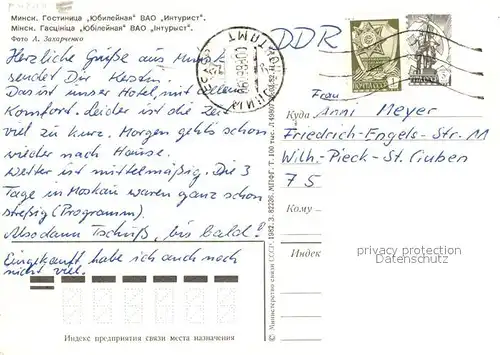 Минск. Гостиница „Юбилейная" ВАО „Интурист".
Мінск. Гасцініца „Юбілейная" ВАО „Інтурыст".
Фото А. Захарченко
DDR
Herzliche Grüße aus Minsk
sendet Dir Kerstin.
Das ist unser Hotel mit
Komfort. Leider ist die Zeit
viel zu kurz. Morgen geht's schon
wieder nach Hause.
Wetter ist mittelmäßig. Die 3
Tage in Moskau waren ganz schön
stressig (Programm).
Also dann Tschüß, bis bald!
Eingekauft habe ich auch noch
nicht viel.
Индекс предприятия связи места назначения
© Министерство связи СССР. 1982. З. 82226. МПФГ. Т. 100 тыс.
Куда
Frau
Anni Meyer
Friedrich-Engels-Str. 11
Wilh.-Pieck-St. Guben
75
Кому
Индекс
privacy protection
Datenschutz